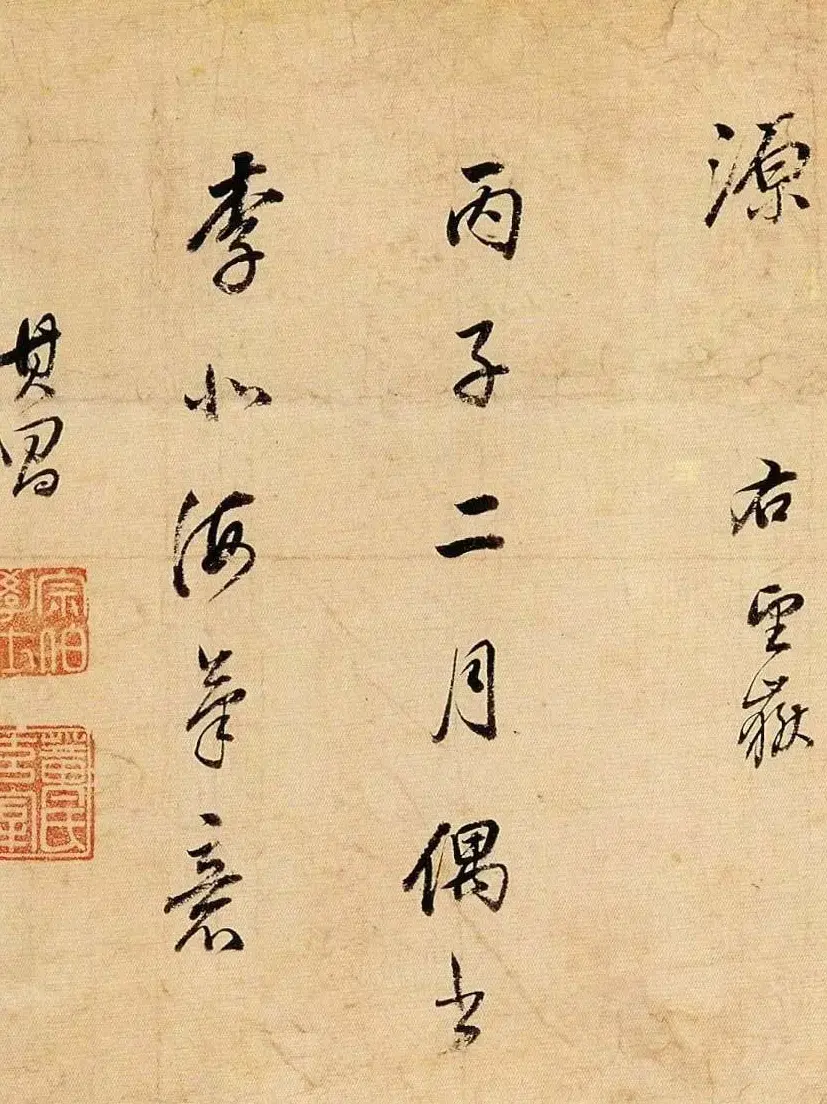 源
右望嶽
丙子二月偶書
李北海筆意
其昌
宗伯學士
董氏玄宰